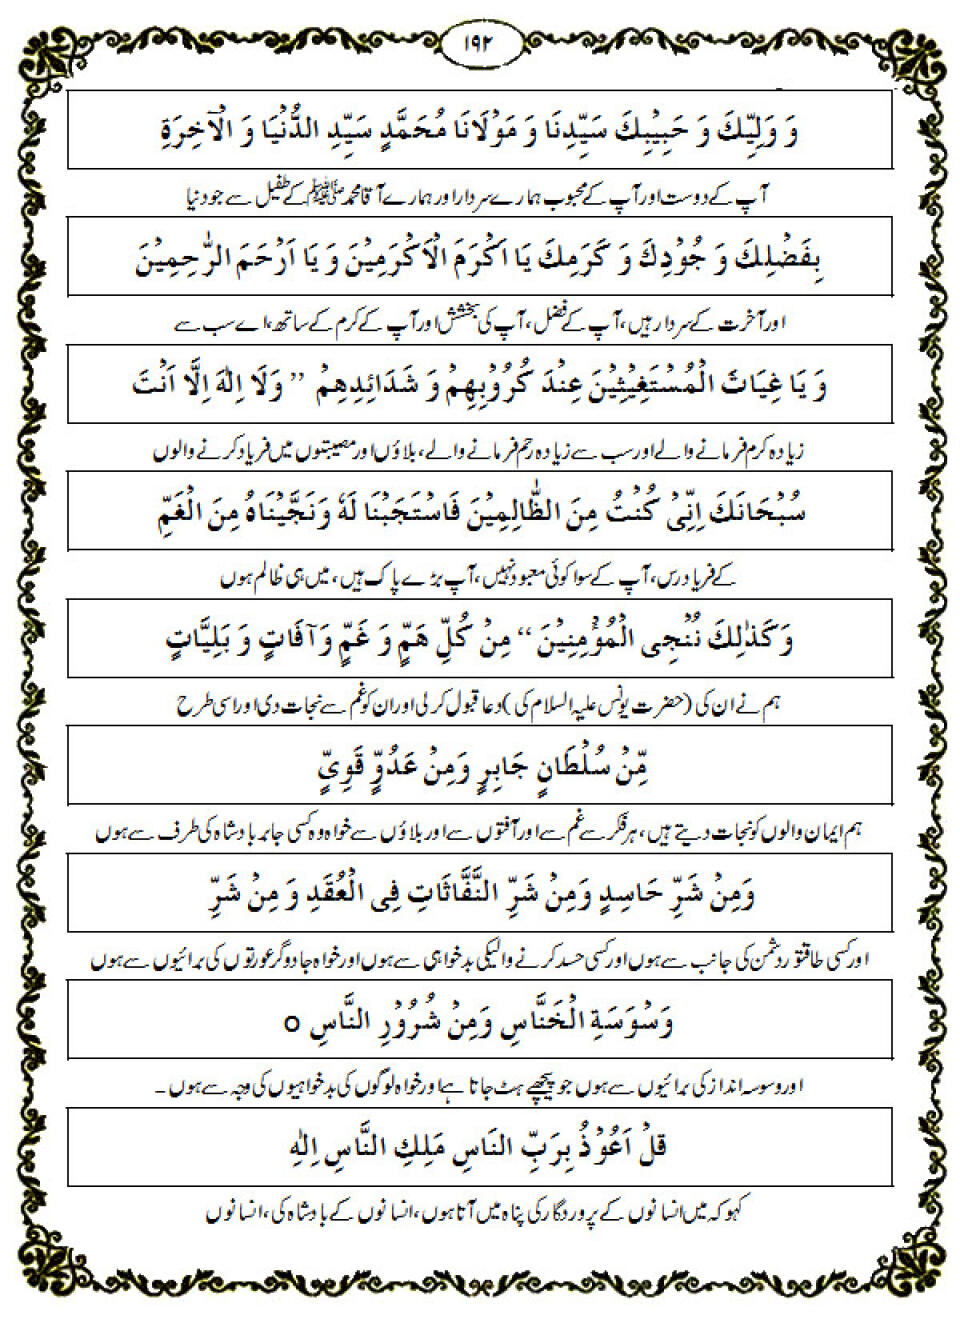 ۱۹۲
وَ وَلِيِّكَ وَ حَبِيْبِكَ سَيِّدِنَا وَ مَوْلَانَا مُحَمَّدٍ سَيِّدِ الدُّنْيَا وَ الْاٰخِرَةِ
آپ کے دوست اور آپ کے محبوب ہمارے سردار اور ہمارے آقا محمد ﷺ کے طفیل سے جو دنیا
بِفَضْلِكَ وَ جُوْدِكَ وَ كَرَمِكَ يَا اَكْرَمَ الْاَكْرَمِيْنَ وَ يَا اَرْحَمَ الرّٰحِمِيْنَ
اور آخرت کے سردار ہیں، آپ کے فضل، آپ کی بخشش اور آپ کے کرم کے ساتھ، اے سب سے
وَ يَا غِيَاثَ الْمُسْتَغِيْثِيْنَ عِنْدَ كُرُوْبِهِمْ وَ شَدَائِدِهِمْ ’’ وَلَا اِلٰهَ اِلَّا اَنْتَ
زیادہ کرم فرمانے والے اور سب سے زیادہ رحم فرمانے والے، بلاؤں اور مصیبتوں میں فریاد کرنے والوں
سُبْحَانَكَ اِنِّىْ كُنْتُ مِنَ الظّٰالِمِيْنَ فَاسْتَجَبْنَا لَهٗ وَنَجَّيْنَاهُ مِنَ الْغَمِّ
کے فریاد رس، آپ کے سوا کوئی معبود نہیں، آپ بڑے پاک ہیں، میں ہی ظالم ہوں
وَ كَذٰلِكَ نُنْجِى الْمُؤْمِنِيْنَ ‘‘ مِنْ كُلِّ هَمٍّ وَ غَمٍّ وَآفَاتٍ وَ بَلِيَّاتٍ
ہم نے ان کی (حضرت یونس علیہ السلام کی) دعا قبول کر لی اور ان کو غم سے نجات دی اور اسی طرح
مِّنْ سُلْطَانٍ جَابِرٍ وَمِنْ عَدُوٍّ قَوِيٍّ
ہم ایمان والوں کو نجات دیتے ہیں، ہر فکر سے غم سے اور آفتوں سے اور بلاؤں سے خواہ وہ کسی جابر بادشاہ کی طرف سے ہوں
وَمِنْ شَرِّ حَاسِدٍ وَمِنْ شَرِّ النَّفَّاثَاتِ فِى الْعُقَدِ وَ مِنْ شَرِّ
اور کسی طاقتور دشمن کی جانب سے ہوں اور کسی حسد کرنے والیکی بدخواہی سے ہوں اور خواہ جادوگر عورتوں کی برائیوں سے ہوں
وَسْوَسَةِ الْخَنَّاسِ وَمِنْ شُرُوْرِ النَّاسِ ○
اور وسوسہ انداز کی برائیوں سے ہوں جو پیچھے ہٹ جاتا ہے اور خواہ لوگوں کی بدخواہیوں کی وجہ سے ہوں ۔
قلْ اَعُوْذُ بِرَبِّ النَاسِ مَلِكِ النَّاسِ اِلٰهِ
کہو کہ میں انسانوں کے پروردگار کی پناہ میں آتا ہوں، انسانوں کے بادشاہ کی، انسانوں